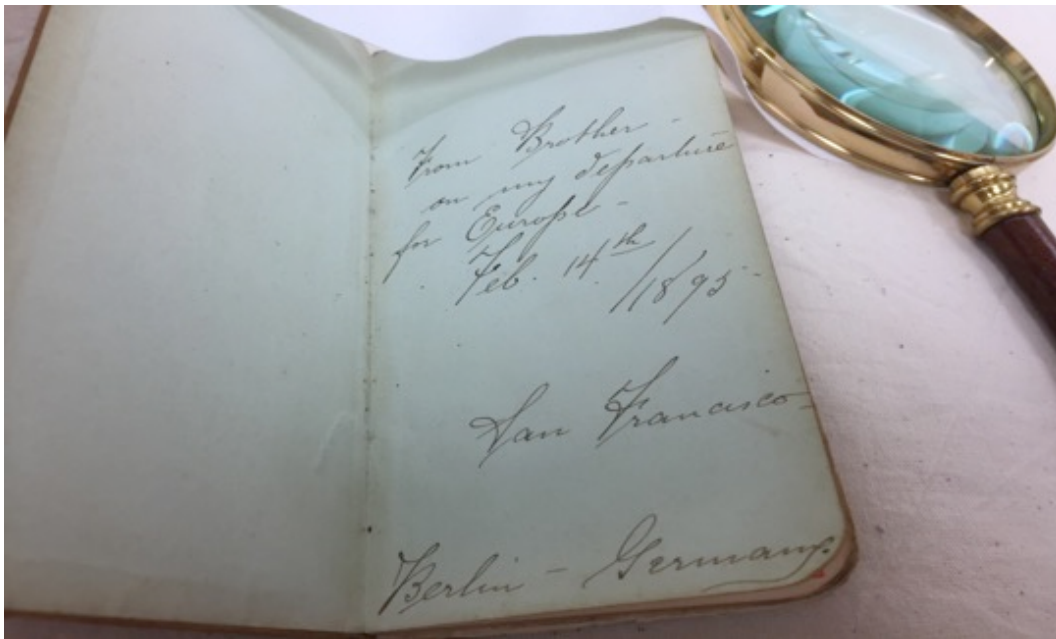 From Brother -
on my departure
for Europe -
Feb. 14th /1895-
San Francisco-
Berlin - Germany.